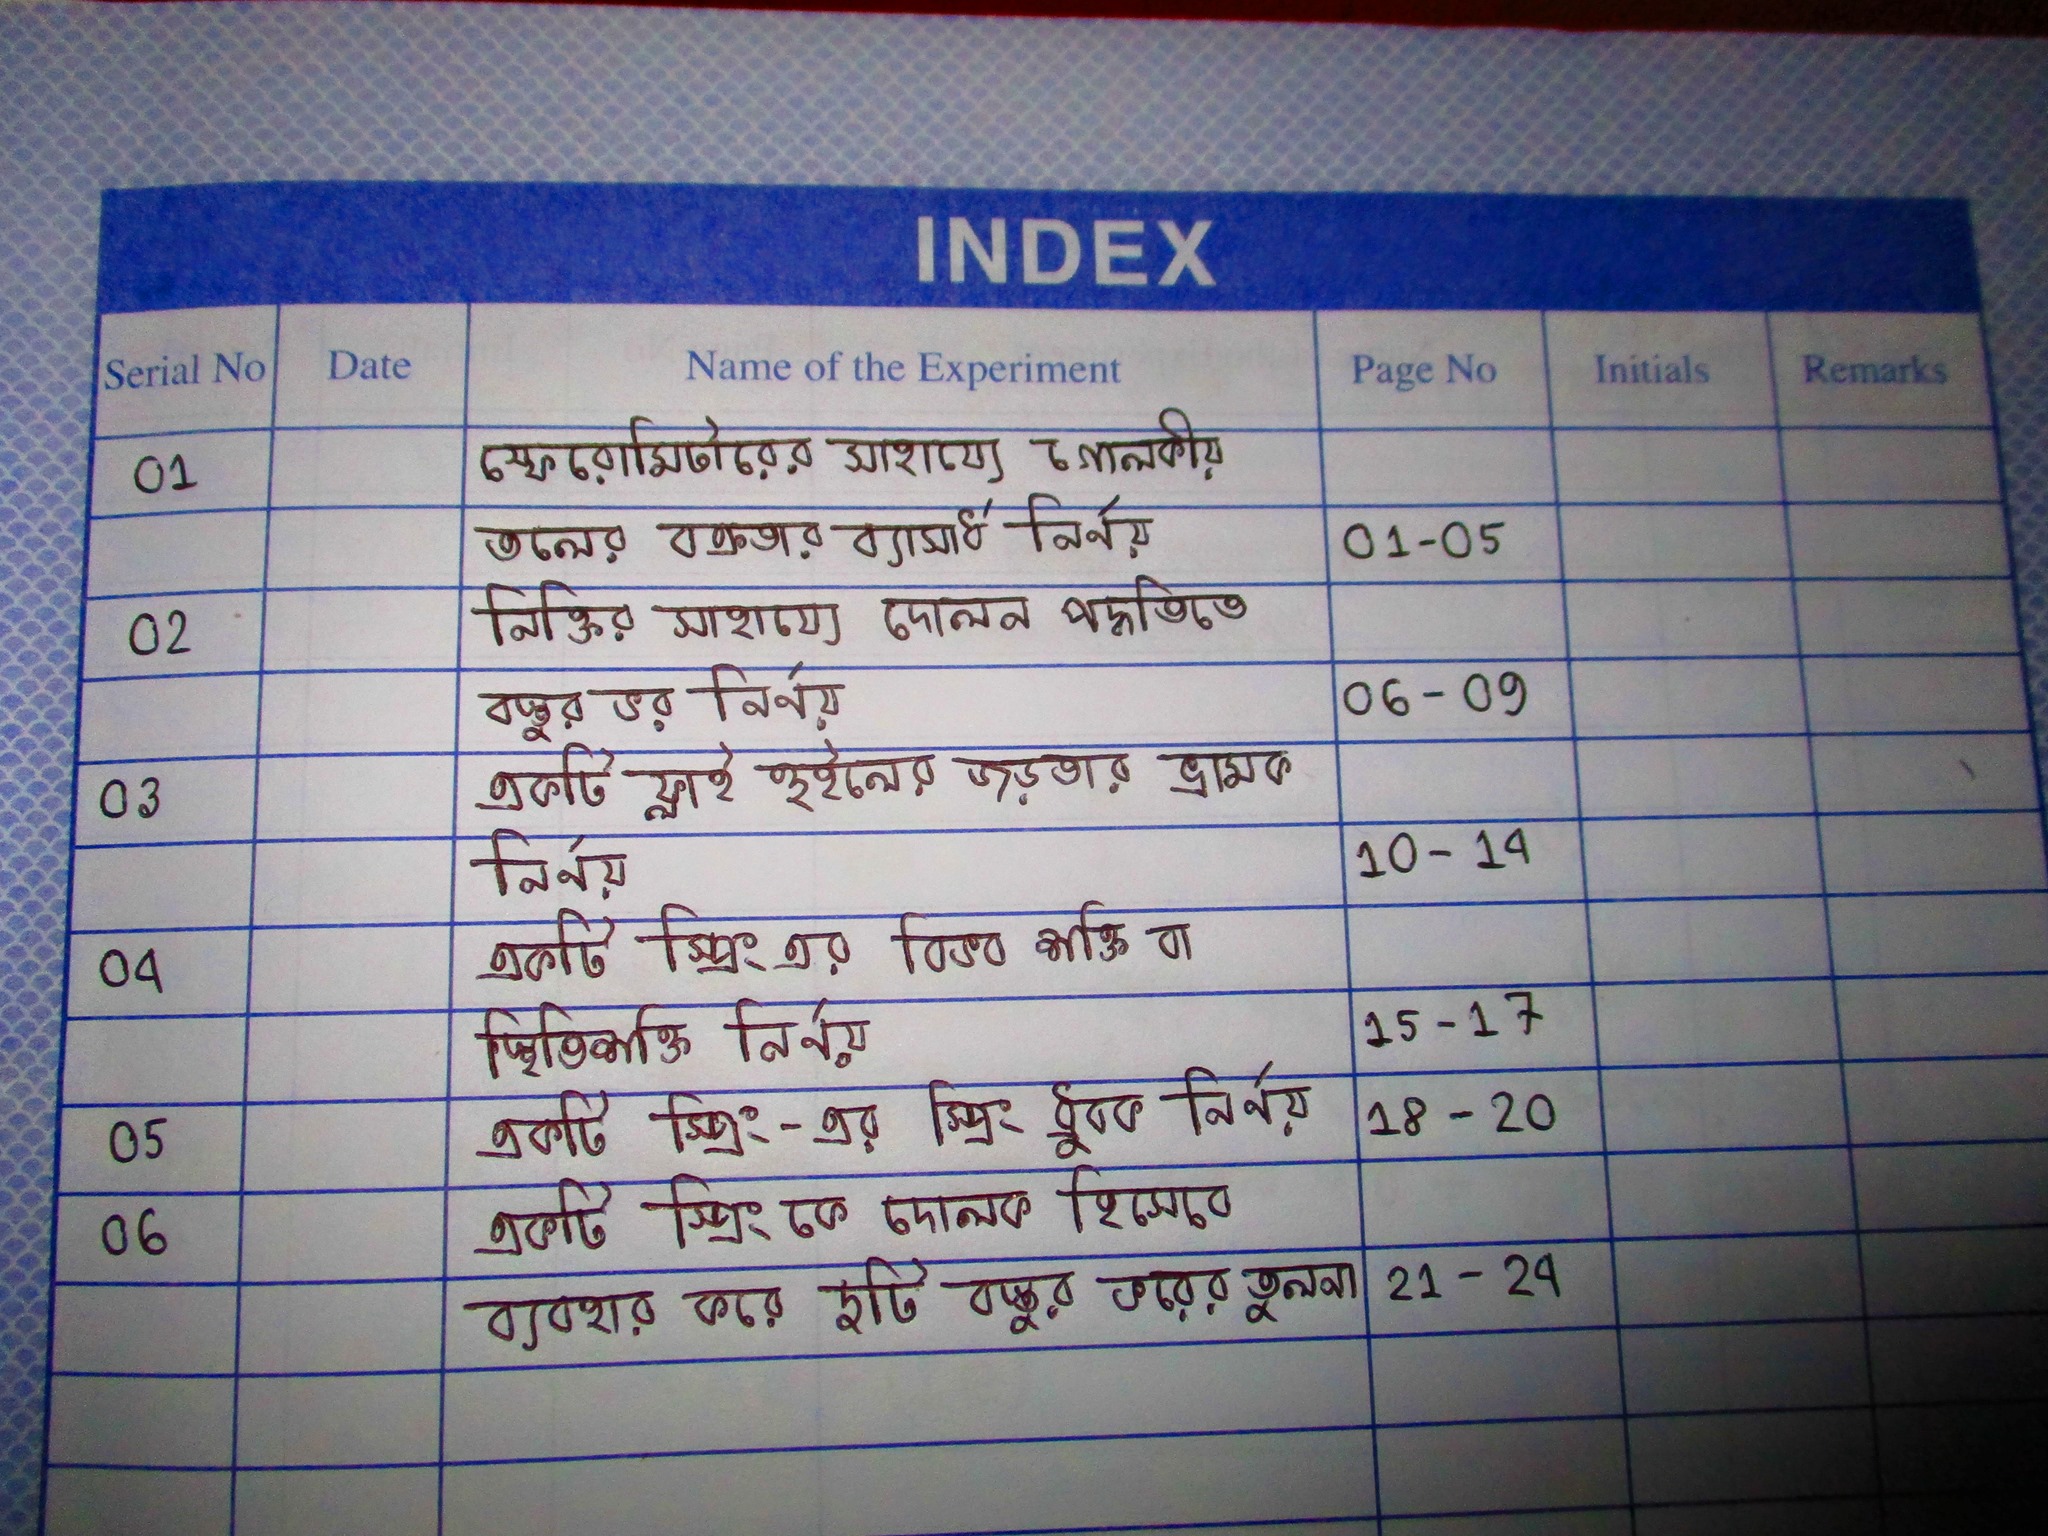 INDEX
Serial No Date Name of the Experiment Page No Initials Remarks
01 স্ফেরোমিটারের সাহায্যে গোলকীয়
তলের বক্রতার ব্যাসার্ধ নির্ণয় 01-05
02 নিক্তির সাহায্যে দোলন পদ্ধতিতে
বস্তুর ভর নির্ণয় 06-09
03 একটি ফ্লাই হুইলের জড়তার ভ্রামক
নির্ণয় 10-14
04 একটি স্প্রিং এর বিভব শক্তি বা
স্থিতিশক্তি নির্ণয় 15-17
05 একটি স্প্রিং-এর স্প্রিং ধ্রুবক নির্ণয় 18-20
06 একটি স্প্রিং কে দোলক হিসেবে
ব্যবহার করে দুটি বস্তুর ভরের তুলনা 21-24